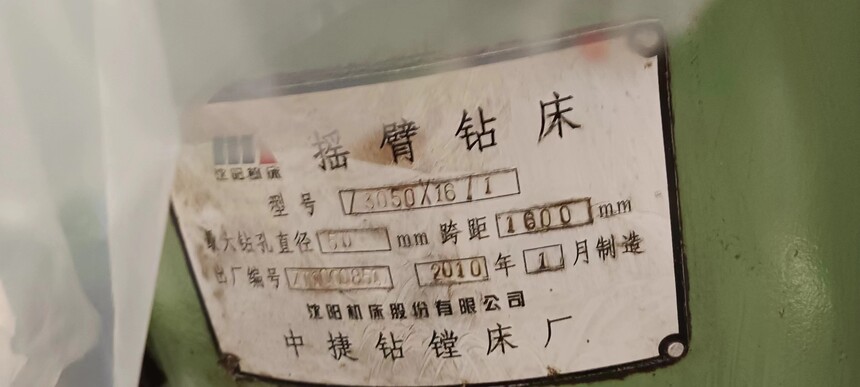 沈阳机床
摇臂钻床
型号 Z3050X16/1
最大钻孔直径 50 mm 跨距 1600 mm
出厂编号 2010 年 1 月制造
沈阳机床股份有限公司
中捷钻镗床厂